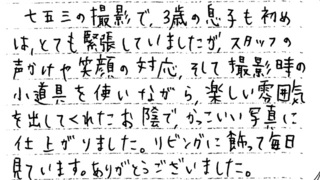 七五三の撮影で、3歳の息子も初め
は、とても緊張していましたが、スタッフの
声かけや笑顔の対応、そして撮影時の
小道具を使いながら、楽しい雰囲気
を出してくれたお陰でかっこいい写真に
仕上がりました。リビングに飾って毎日
見ています。ありがとうございました。